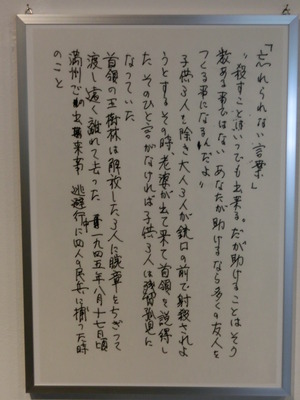 「忘れられない言葉」
〃殺すことはいつでも出来る。だが助けることはそう
数ある事ではない あなたが助けるなら多くの友人を
つくる事になるんだよ〃
子供3人を除き大人3人が銃口の前で射殺されよ
うとするその時、老婆が出て来て首領を説得し
た そのひと言がなければ子供3人は残留孤児に
なっていた
首領の王樹林は解放した3人に腕章をちぎって
渡し遠く離れて去った 一九四五年八月十七日頃
満州での出来事 逃避行に四人の民兵に捕った時
のこと